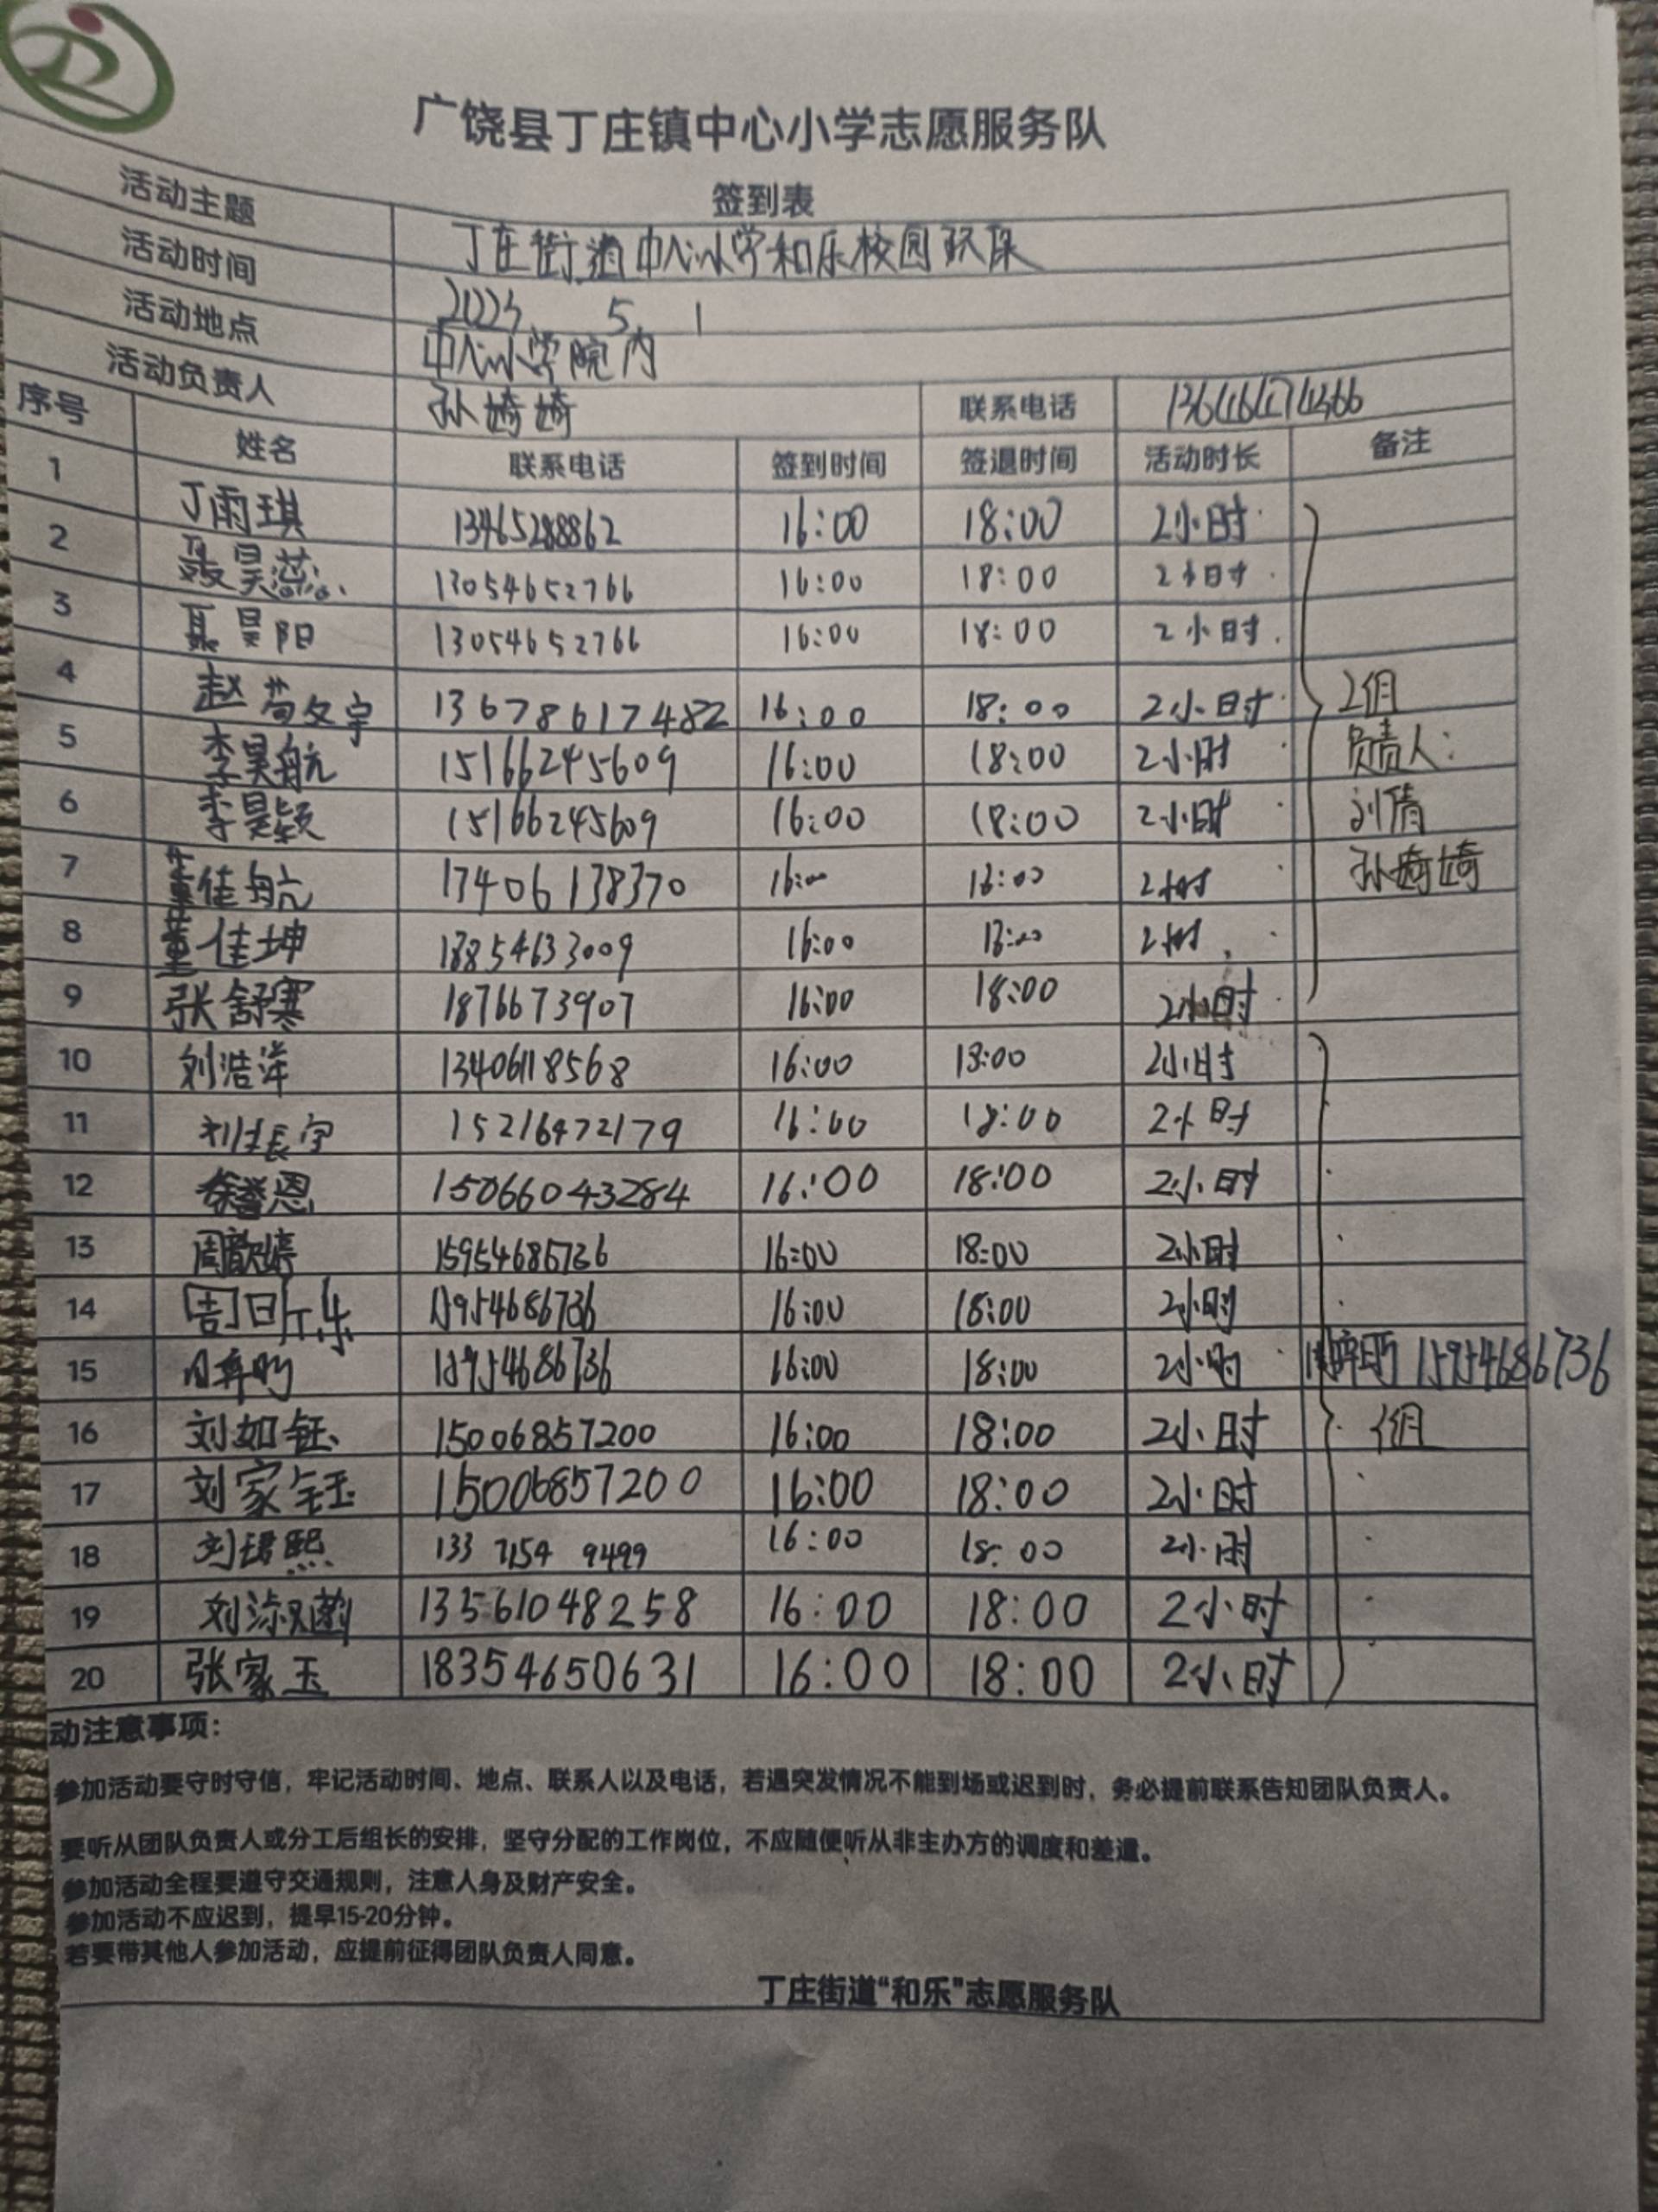 广饶县丁庄镇中心小学志愿服务队
签到表
活动主题 丁庄街道中心小学和乐校园环保
活动时间 2023 5 1
活动地点 中心小学院内
活动负责人 孙婍婍 联系电话
序号 姓名 联系电话 签到时间 签退时间 活动时长 备注
1 丁雨琪 13465288862 16:00 18:00 2小时
2 聂昊蕊 13054652766 16:00 18:00 2小时
3 聂昊阳 13054652766 16:00 18:00 2小时
4 赵苟文宇 136786617482 16:00 18:00 2小时 2组
5 李昊航 15166245609 16:00 18:00 2小时 负责人:
6 李昊颖 15166245609 16:00 18:00 2小时 刘倩
7 董佳航 17406138370 16:00 18:00 2小时 孙婍婍
8 董佳坤 18854633009 16:00 18:00 2小时
9 张舒寒 1876673907 16:00 18:00 2小时
10 刘浩洋 13406118568 16:00 18:00 2小时
11 刘长宇 15216472179 16:00 18:00 2小时
12 徐誉恩 15066043284 16:00 18:00 2小时
13 周歆婷 15954686736 16:00 18:00 2小时
14 周 乐 15954686736 16:00 18:00 2小时
15 15954686736 16:00 18:00 2小时 15954686736
16 刘如钰 15006857200 16:00 18:00 2小时 1组
17 刘家钰 15006857200 16:00 18:00 2小时
18 刘珺熙 133 7154 9499 16:00 18:00 2小时
19 刘 13561048258 16:00 18:00 2小时
20 张家玉 18354650631 16:00 18:00 2小时
动注意事项:
参加活动要守时守信，牢记活动时间、地点、联系人以及电话，若遇突发情况不能到场或迟到时，务必提前联系告知团队负责人。
要听从团队负责人或分工后组长的安排，坚守分配的工作岗位，不应随便听从非主办方的调度和差遣。
参加活动全程要遵守交通规则，注意人身及财产安全。
参加活动不应迟到，提早15-20分钟。
若要带其他人参加活动，应提前征得团队负责人同意。
丁庄街道“和乐”志愿服务队